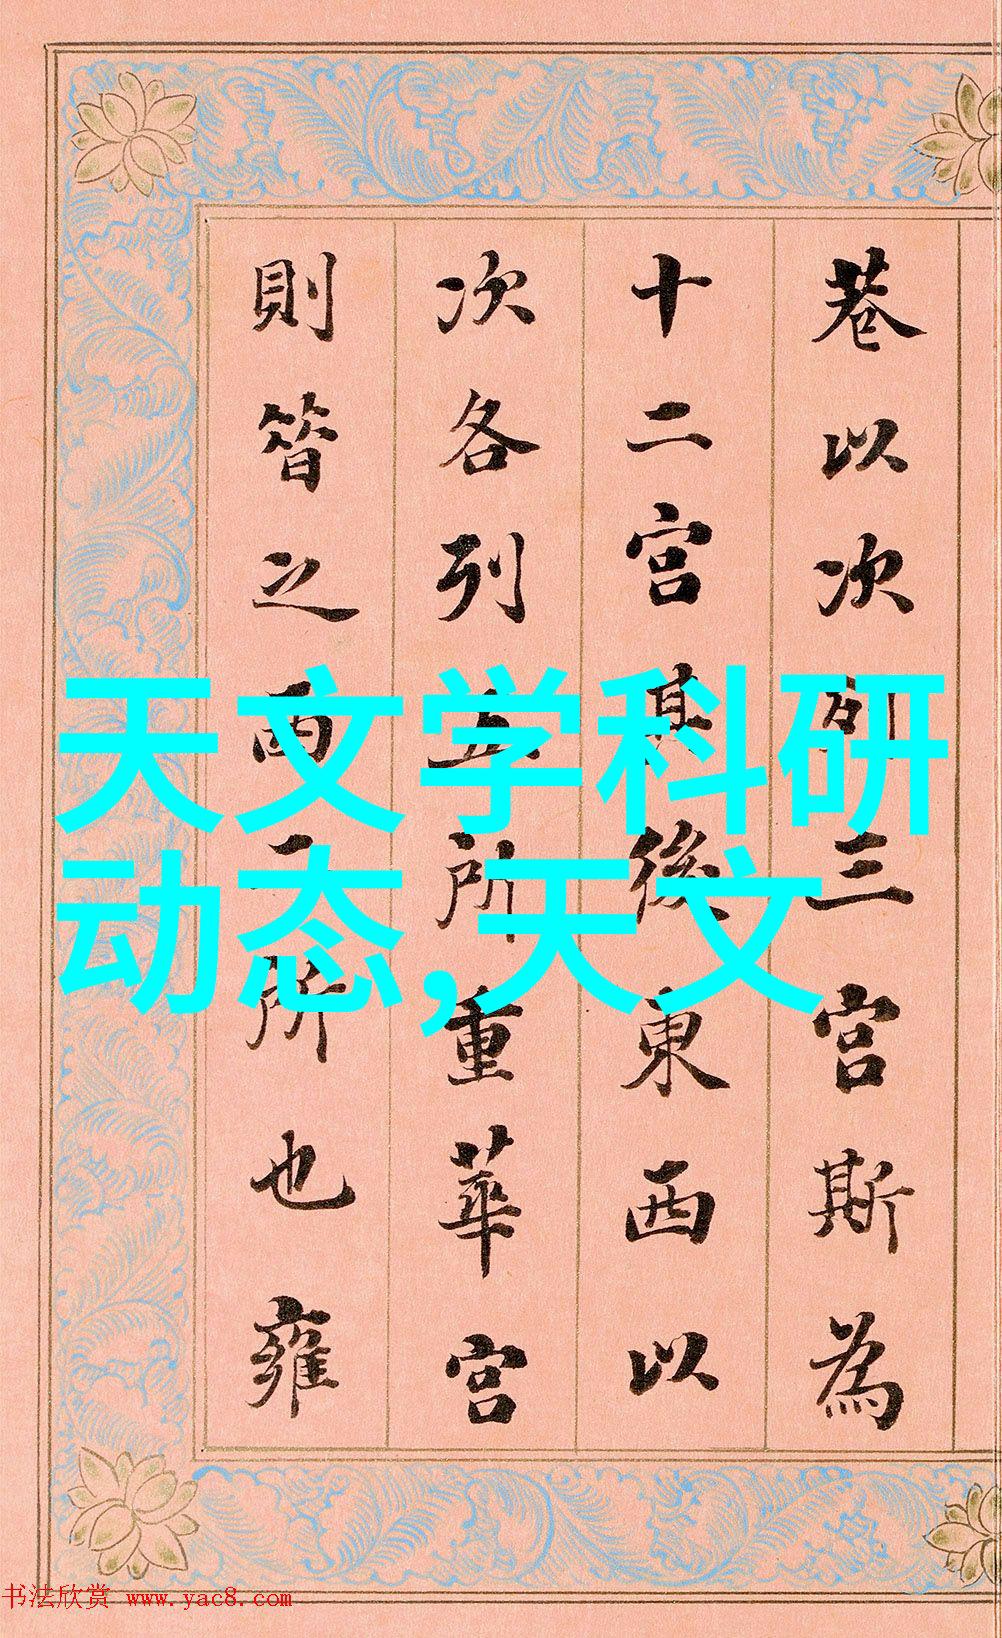 巷以次列三宮斯為
十二宮其後東西以
次各列五所重華宮
則昔之西二所也雍
天文学科研
动态,天文
书法欣赏 www.yac8.com